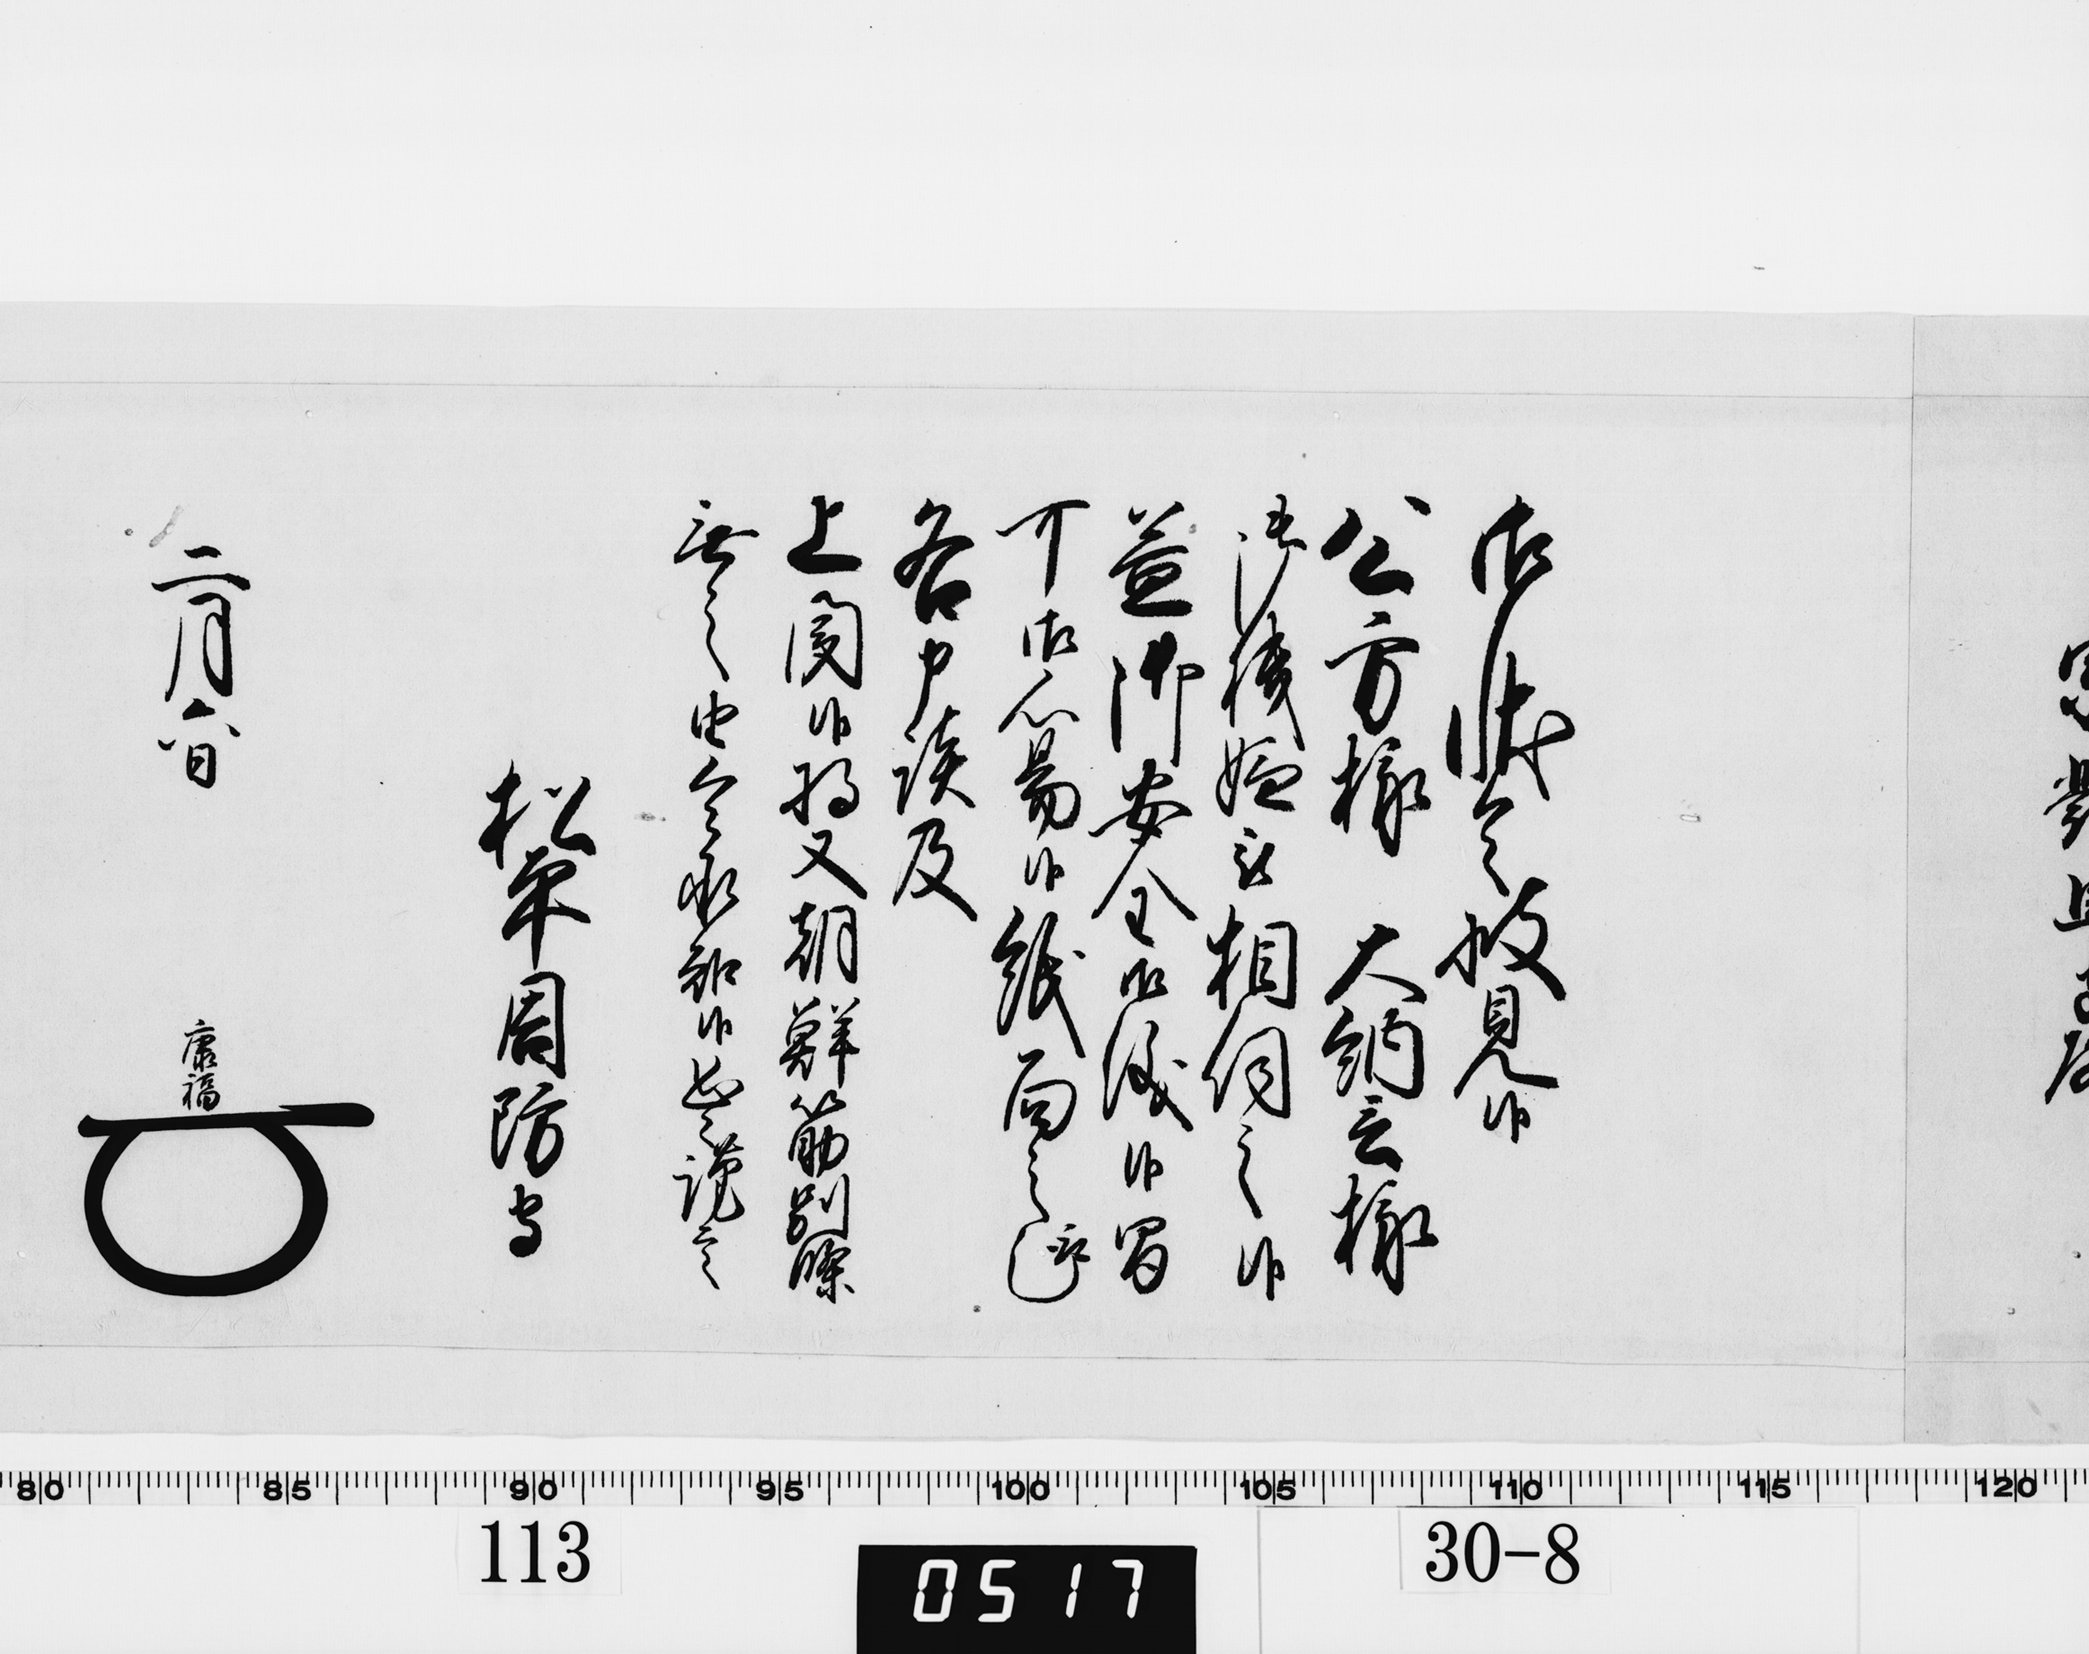 御状令披見候
公方様 大納言様
御機嫌被相伺之候
益御安全御儀候間
可御心易候紙面之趣
各申談及
上聞候将又朝鮮筋別條
無之由令承知候恐々謹言
松平周防守
二月六日
康福
80 85 90 95 100 105 110 115 120
113
0517
30-8